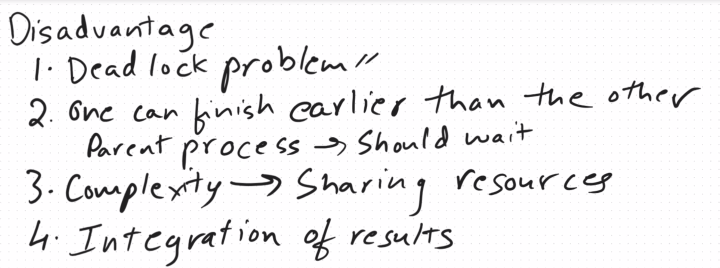 Disadvantage
1. Dead lock problem //
2. One can finish earlier than the other
Parent process → Should wait
3. Complexity → Sharing resources
4. Integration of results